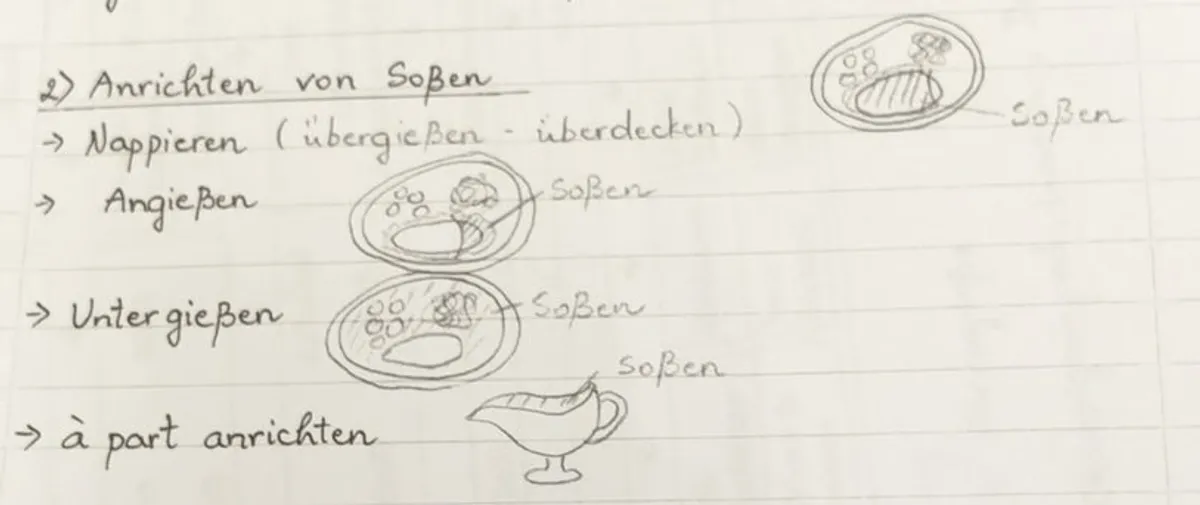 2) Anrichten von Soßen
→ Nappieren (übergießen - überdecken)
Soßen
→ Angießen
Soßen
→ Untergießen
Soßen
Soßen
→ à part anrichten